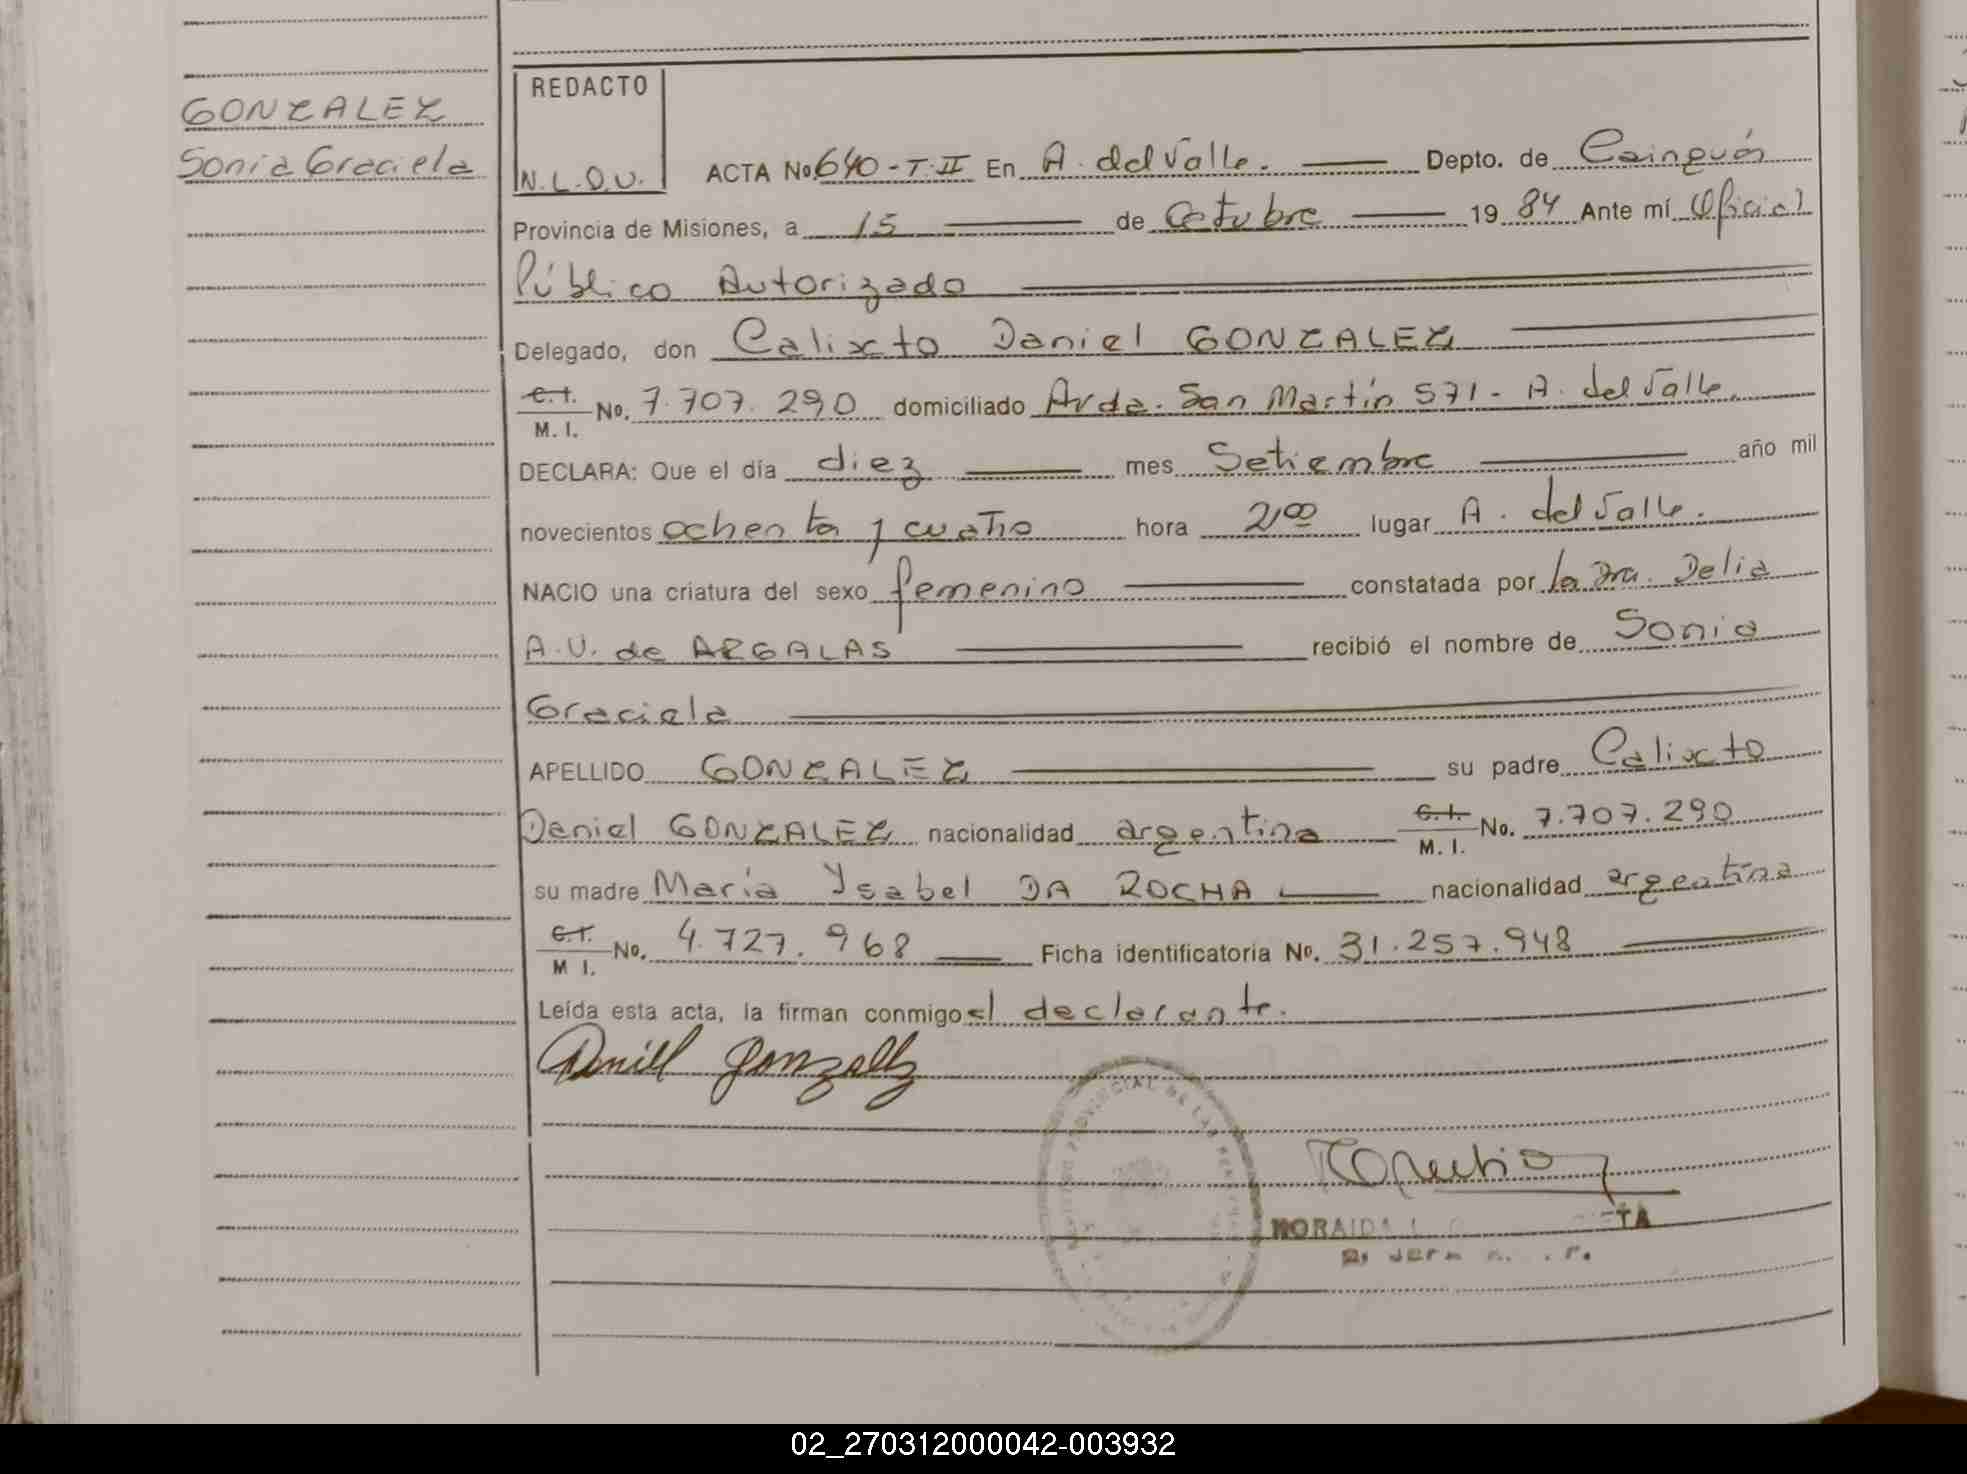 GONZALEZ
Sonia Graciela
REDACTO
N.L.D.V.
ACTA No. 640-T.II En A. del Valle. Depto. de Cainguás
Provincia de Misiones, a 15 de Octubre 19 84 Ante mí Oficial
Público Autorizado
Delegado, don Calixto Daniel GONZALEZ
C.I. M. I. No. 7.707.290 domiciliado Avda. San Martín 571 - A. del Valle.
DECLARA: Que el día diez mes Setiembre año mil
novecientos ochenta y cuatro hora 21,00 lugar A. del Valle.
NACIO una criatura del sexo femenino constatada por la Dra. Delia
A.V. de ARGALAS recibió el nombre de Sonia
Graciela
APELLIDO GONZALEZ su padre Calixto
Daniel GONZALEZ nacionalidad argentina C.I. M. I. No. 7.707.290
su madre María Ysabel DA ROCHA nacionalidad argentina
C.I. M I. No. 4.727.968 Ficha identificatoria No. 31.257.948
Leída esta acta, la firman conmigo el declarante.
Daniel Gonzalez
PROVINCIAL DE LAS
NORAIDA
02_270312000042-003932